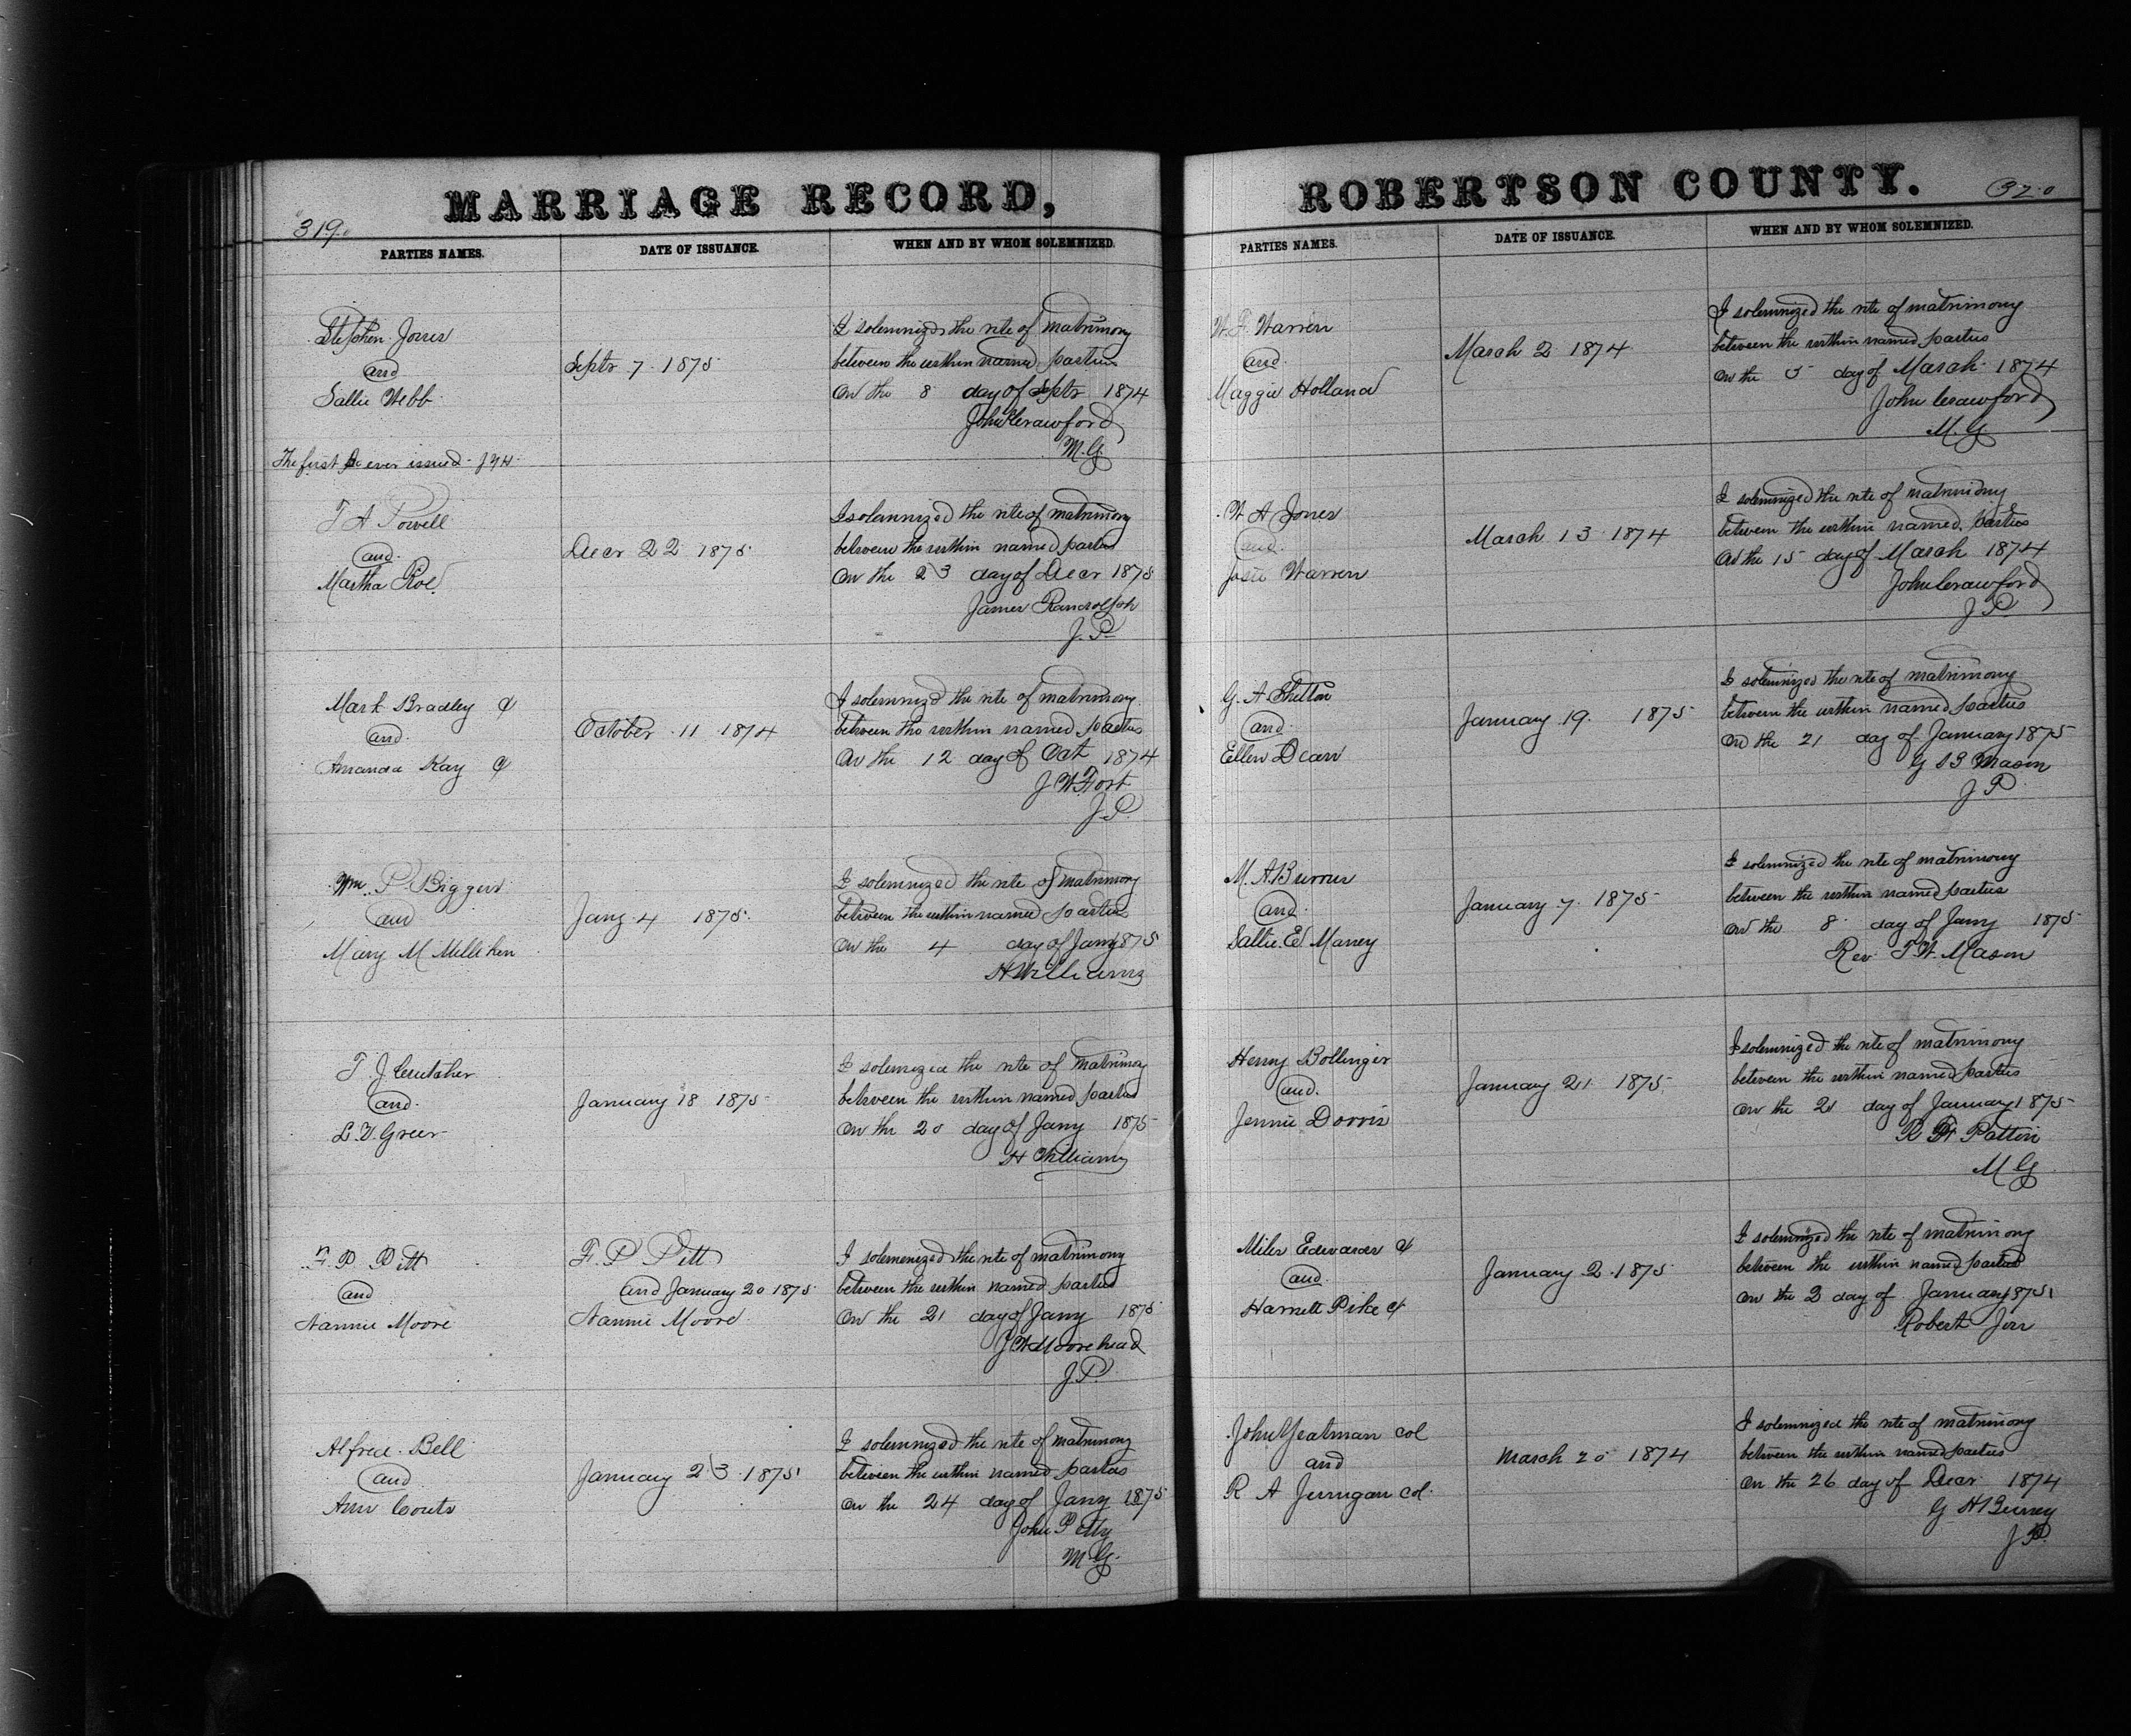 MARRIAGE RECORD,
319
PARTIES NAMES.
DATE OF ISSUANCE.
WHEN AND BY WHOM SOLEMNIZED.
Stephen Jones
and
Sallie Webb
Septr 7 1875
I solemnized the rite of matrimony
between the within named parties
on the 8 day of Septr 1874
John Crawford
M.G.
The first ever issued
T A Powell
and
Martha Roe
Decr 22 1875
I solemnized the rite of matrimony
between the within named parties
on the 23 day of Decr 1875
James Randolph
J.P.
Mark Bradley
and
Amanda Kay
October 11 1874
I solemnized the rite of matrimony
between the within named parties
on the 12 day of Oct 1874
J W Fort
J.P.
Wm P Biggers
and
Mary M Milliken
Jany 4 1875
I solemnized the rite of matrimony
between the within named parties
on the 4 day of Jany 1875
H Williams
T. J. Crutcher
and
L. V. Greer
January 18 1875
I solemnized the rite of matrimony
between the within named parties
on the 20 day of Jany 1875
H Williams
F. P. Pitt
and
Nannie Moore
F. P Pitt
and January 20 1875
Nannie Moore
I solemenized the rite of matrimony
between the within named parties
on the 21 day of Jany 1875
J W Moorehead
J.P.
Alfred Bell
and
Ann Couts
January 23 1875
I solemnized the rite of matrimony
between the within named parties
on the 24 day of Jany 1875
John Petty
M.G.
ROBERTSON COUNTY.
320
PARTIES NAMES.
DATE OF ISSUANCE.
WHEN AND BY WHOM SOLEMNIZED.
W. F. Warren
and
Maggie Holland
March 2 1874
I solemnized the rite of matrimony
between the within named parties
on the 5 day of March 1874
John Crawford
M.G
W A Jones
and
Josie Warren
March 13 1874
I solemnized the rite of matrimony
between the within named parties
on the 15 day of March 1874
John Crawford
J P
G. A Shelton
and
Ellen Dean
January 19. 1875
I solemnized the rite of matrimony
between the within named parties
on the 21 day of January 1875
G S B Mason
J P
M. A Burrus
and
Sallie E Maney
January 7 1875
I solemnized the rite of matrimony
between the within named parties
on the 8 day of Jany 1875
Rev T W. Mason
Henry Bollinger
and
Jennie Dorris
January 21 1875
I solemnized the rite of matrimony
between the within named parties
on the 21 day of January 1875
Pattin
M G
Miles Edwards
and
Harriett Pike
January 2 1875
I solemnized the rite of matrimony
between the within named parties
on the 2 day of January 1875
Robert
John Yeatman col
and
R A Jernigan col
March 20 1874
I solemnized the rite of matrimony
between the within named parties
on the 26 day of Decr 1874
G H
J P.